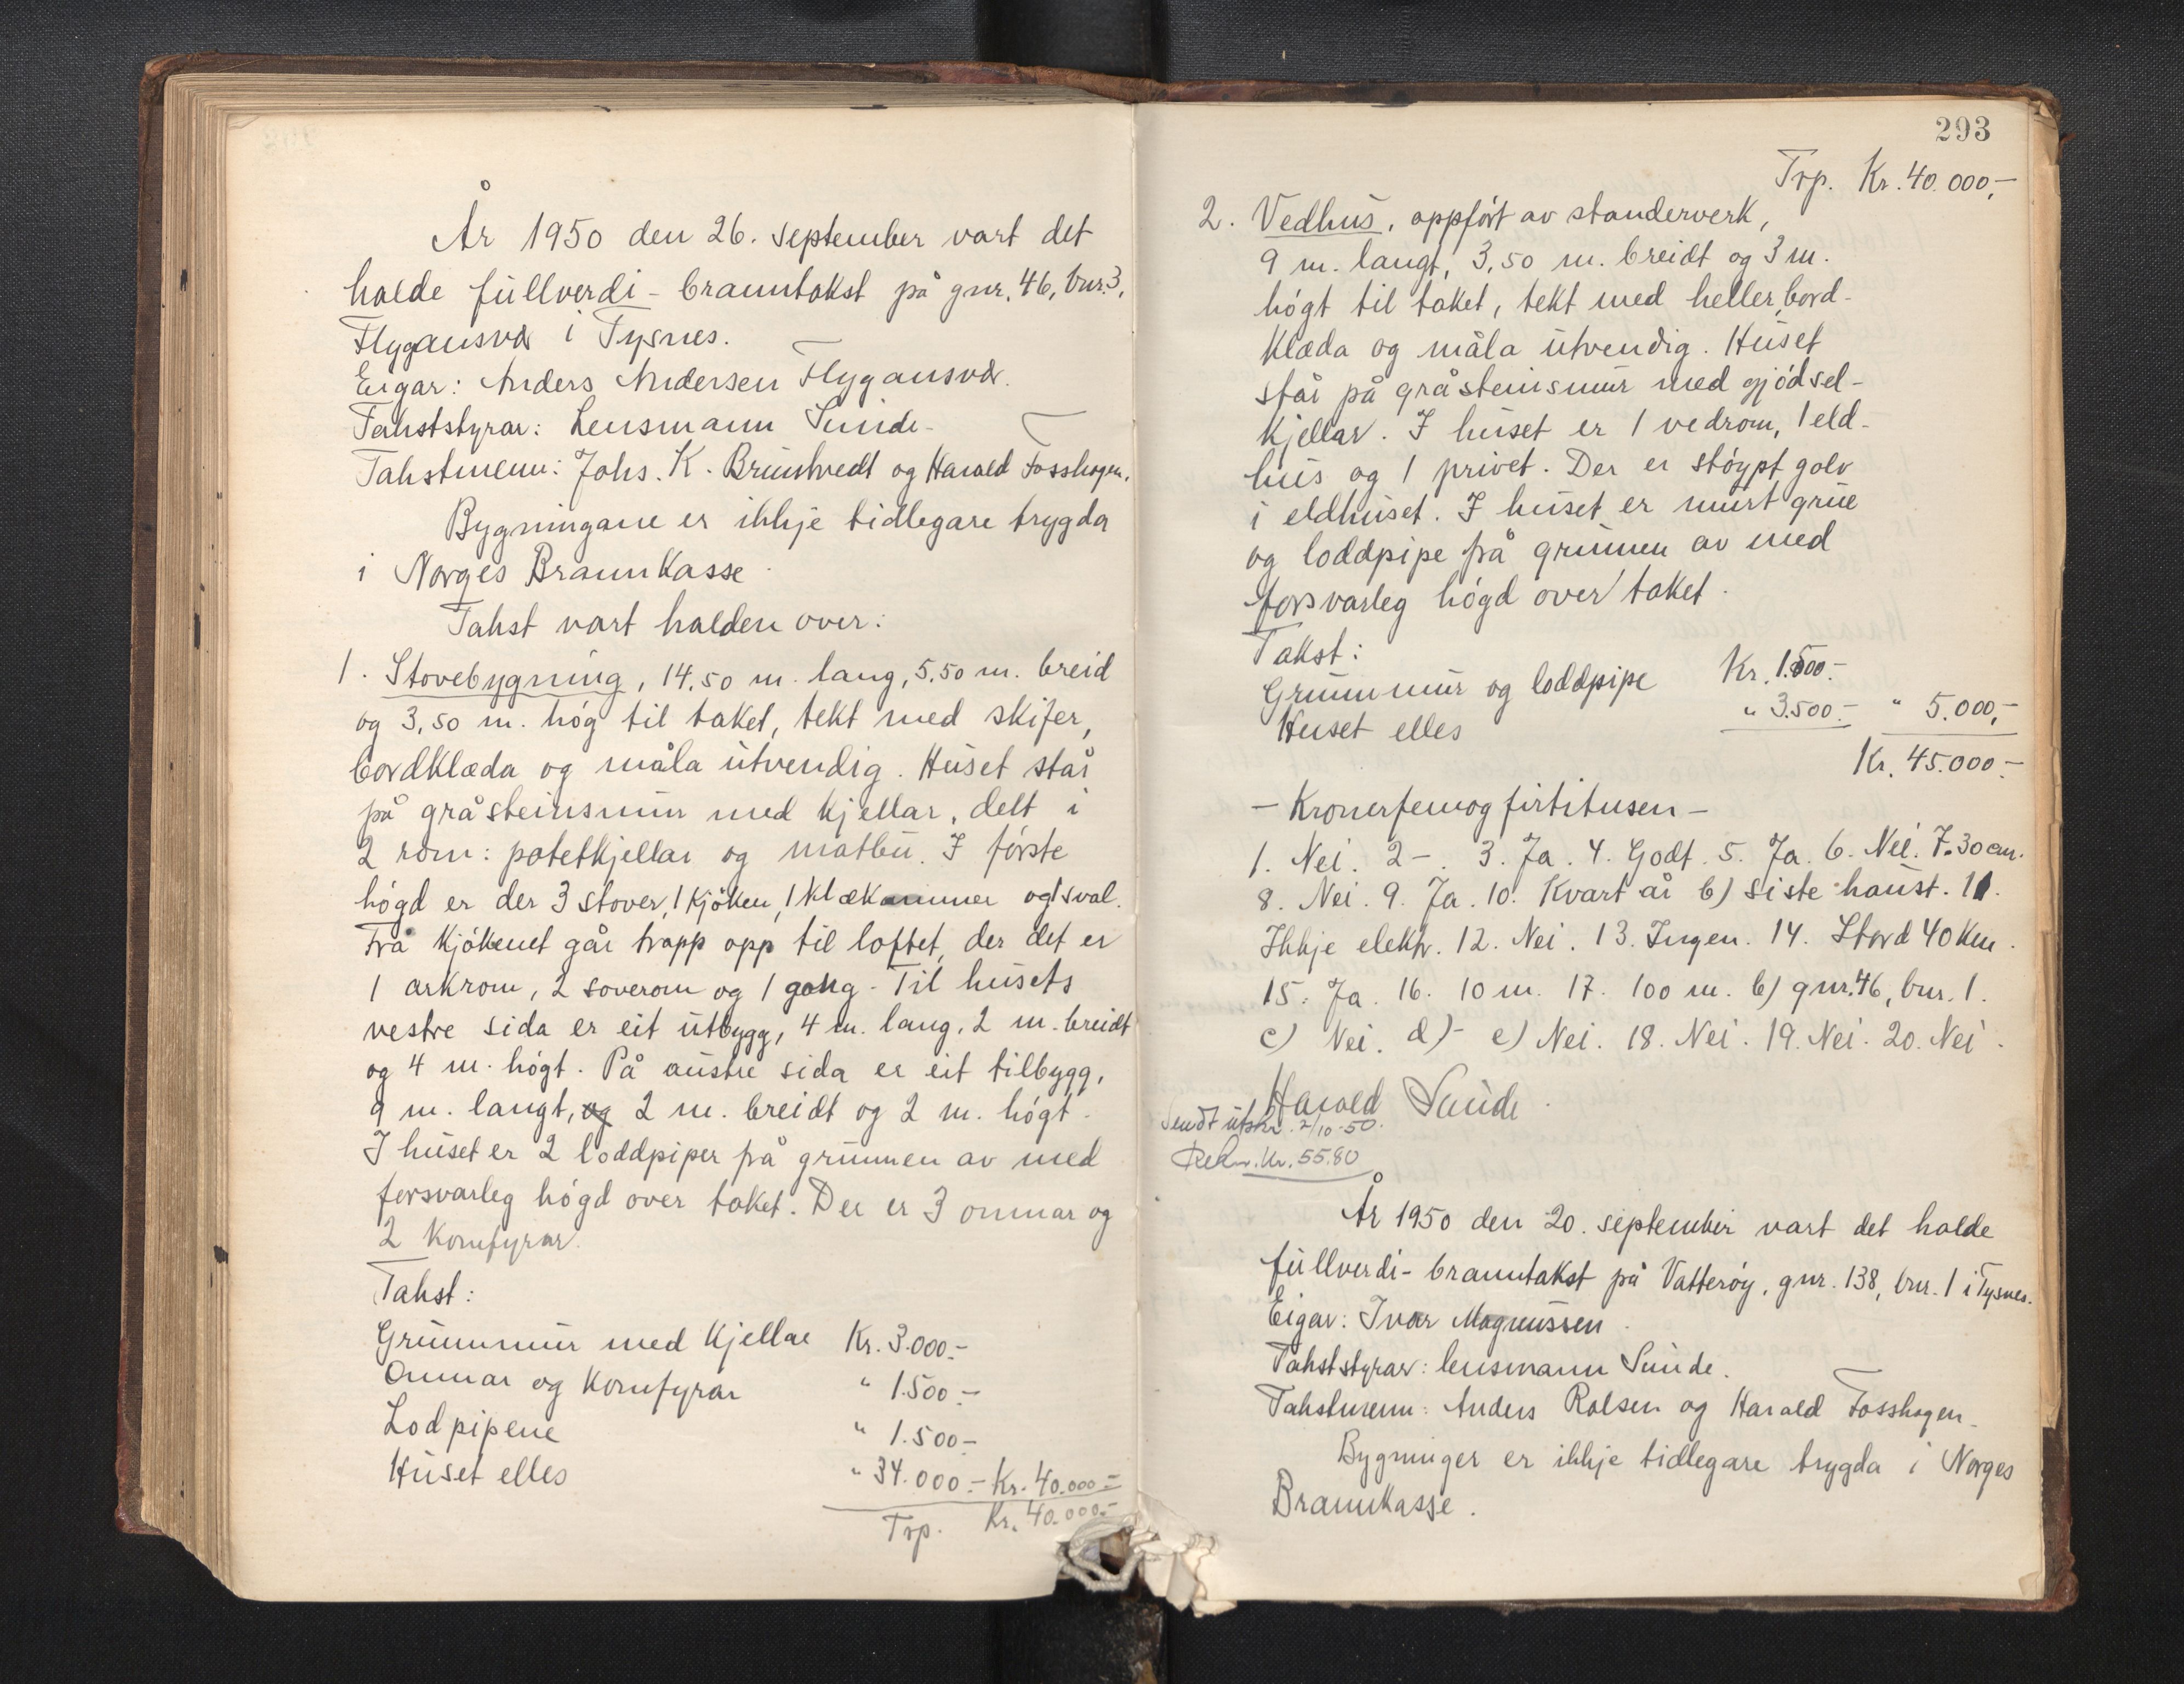 År 1950 den 26. september vart det
halde fullverdi-branntakst på gnr. 46, bnr. 3,
Flygansvær i Tysnes.
Eigar: Anders Andersen Flygansvær.
Takststyrar: Lensmann Sunde.
Takstmenn: Johs. K. Bruntvedt og Harald Fosshagen.
Bygningane er ikkje tidlegare trygda
i Norges Brannkasse.
Takst vart halden over:
1. Stovebygning, 14,50 m. lang, 5,50 m. breid
og 3,50 m. høg til taket, tekt med skifer,
bordklæda og måla utvendig. Huset står
på gråsteinsmur med kjellar, delt i
2 rom: potetkjellar og matbu. I første
høgd er der 3 stover, 1 kjøken, 1 klækammer og 1 sval.
Frå kjøkenet går trapp opp til loftet, der det er
1 arkrom, 2 soverom og 1 gang. Til husets
vestre sida er eit utbygg, 4 m. lang, 2 m. breidt
og 4 m. høgt. På austre sida er eit tilbygg,
9 m. langt, og 2 m. breidt og 2 m. høgt.
I huset er 2 loddpiper frå grunnen av med
forsvarleg høgd over taket. Der er 3 omnar og
2 komfyrar.
Takst:
Grunnmur med kjellar Kr. 3.000.-
Omnar og komfyrar " 1.500.-
Lodpipene " 1.500.-
Huset elles " 34.000.- Kr. 40.000.-
Trp. Kr. 40.000.-
293
Trp. Kr. 40.000,-
2. Vedhus, oppført av standerverk,
9 m. langt, 3,50 m. breidt og 3 m.
høgt til taket, tekt med heller, bord-
klæda og måla utvendig. Huset
står på gråsteinsmur med gjødsel-
kjellar. I huset er 1 vedrom, 1 eld-
hus og 1 privet. Der er støypt golv
i eldhuset. I huset er murt grue
og loddpipe frå grunnen av med
forsvarleg høgd over taket.
Takst:
Grunnmur og loddpipe Kr. 1.500.-
Huset elles " 3.500.- " 5.000,-
Kr. 45.000.-
- Kronerfemogfirtitusen -
1. Nei. 2 -. 3. Ja. 4. Godt. 5. Ja. 6. Nei. 7. 30 cm.
8. Nei. 9. Ja. 10. Kvart år b) siste haust. 11.
Ikkje elektr. 12. Nei. 13. Ingen. 14. Stord 40 km.
15. Ja. 16. 10 m. 17. 100 m. b) gnr. 46, bnr. 1.
c) Nei. d) - e) Nei. 18. Nei. 19. Nei. 20. Nei.
Harald Sunde.
Sendt utskr. 2/10-50.
Rekn. kr. 55.80
År 1950 den 20. september vart det halde
fullverdi-branntakst på Vatterøy, gnr. 138, bnr. 1 i Tysnes.
Eigar: Ivar Magnussen.
Takststyrar: lensmann Sunde.
Takstmenn: Anders Rolsen og Harald Fosshagen.
Bygninger er ikkje tidlegare trygda i Norges
Brannkasse.